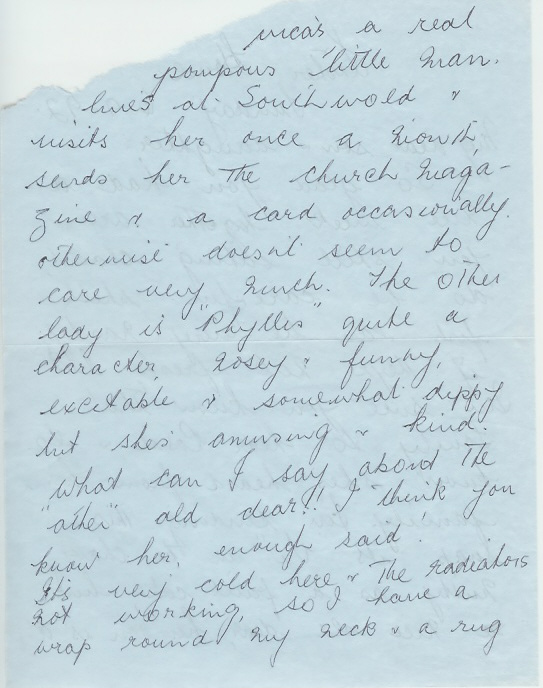 a real
pompous little man.
lives at Southwold &
visits her once a month,
sends her the church maga-
zine & a card occasionally.
otherwise doesn't seem to
care very much. The other
lady is "Phyllis" quite a
character, nosey & funny,
excitable & somewhat dippy
but she's amusing & kind.
What can I say about the
"other" old dear!! I think you
know her, enough said!
It's very cold here & The radiators
not working, so I have a
wrap round my neck & a rug